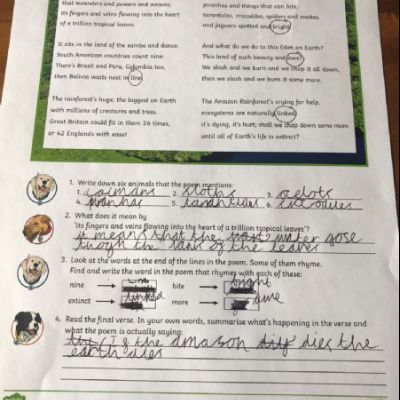 that meanders and powers and weaves
its fingers and veins flowing into the heart
of a trillion tropical leaves.
It sits in the land of the samba and dance.
South American countries count nine:
There's Brazil and Peru, Colombia too,
then Bolivia waits next in line.
The rainforest's huge, the biggest on Earth
with millions of creatures and trees.
Great Britain could fit in there 26 times,
or 42 Englands with ease!
piranhas and things that can bite;
tarantulas, crocodiles, spiders and snakes,
and jaguars spotted and bright.
And what do we do to this Eden on Earth?
This land of such beauty and awe?
We slash and we burn and we chop it all down,
then we slash and we burn it some more.
The Amazon Rainforest's crying for help,
ecosystems are naturally linked;
it's dying, it's hurt; shall we chop down some more
until all of Earth's life is extinct?
1. Write down six animals that the poem mentions:
1. caimans 2. sloths 3. ocelots
4. piranhas 5. 6.
2. What does it mean by
'its fingers and veins flowing into the heart of a trillion tropical leaves'?
it means that the water gose
through the of the leaves
3. Look at the words at the end of the lines in the poem. Some of them rhyme.
Find and write the word in the poem that rhymes with each of these:
nine bite bright
extinct linked more awe
4. Read the final verse. In your own words, summarise what's happening in the verse and
what the poem is actually saying:
If the amason dies the
earth dies